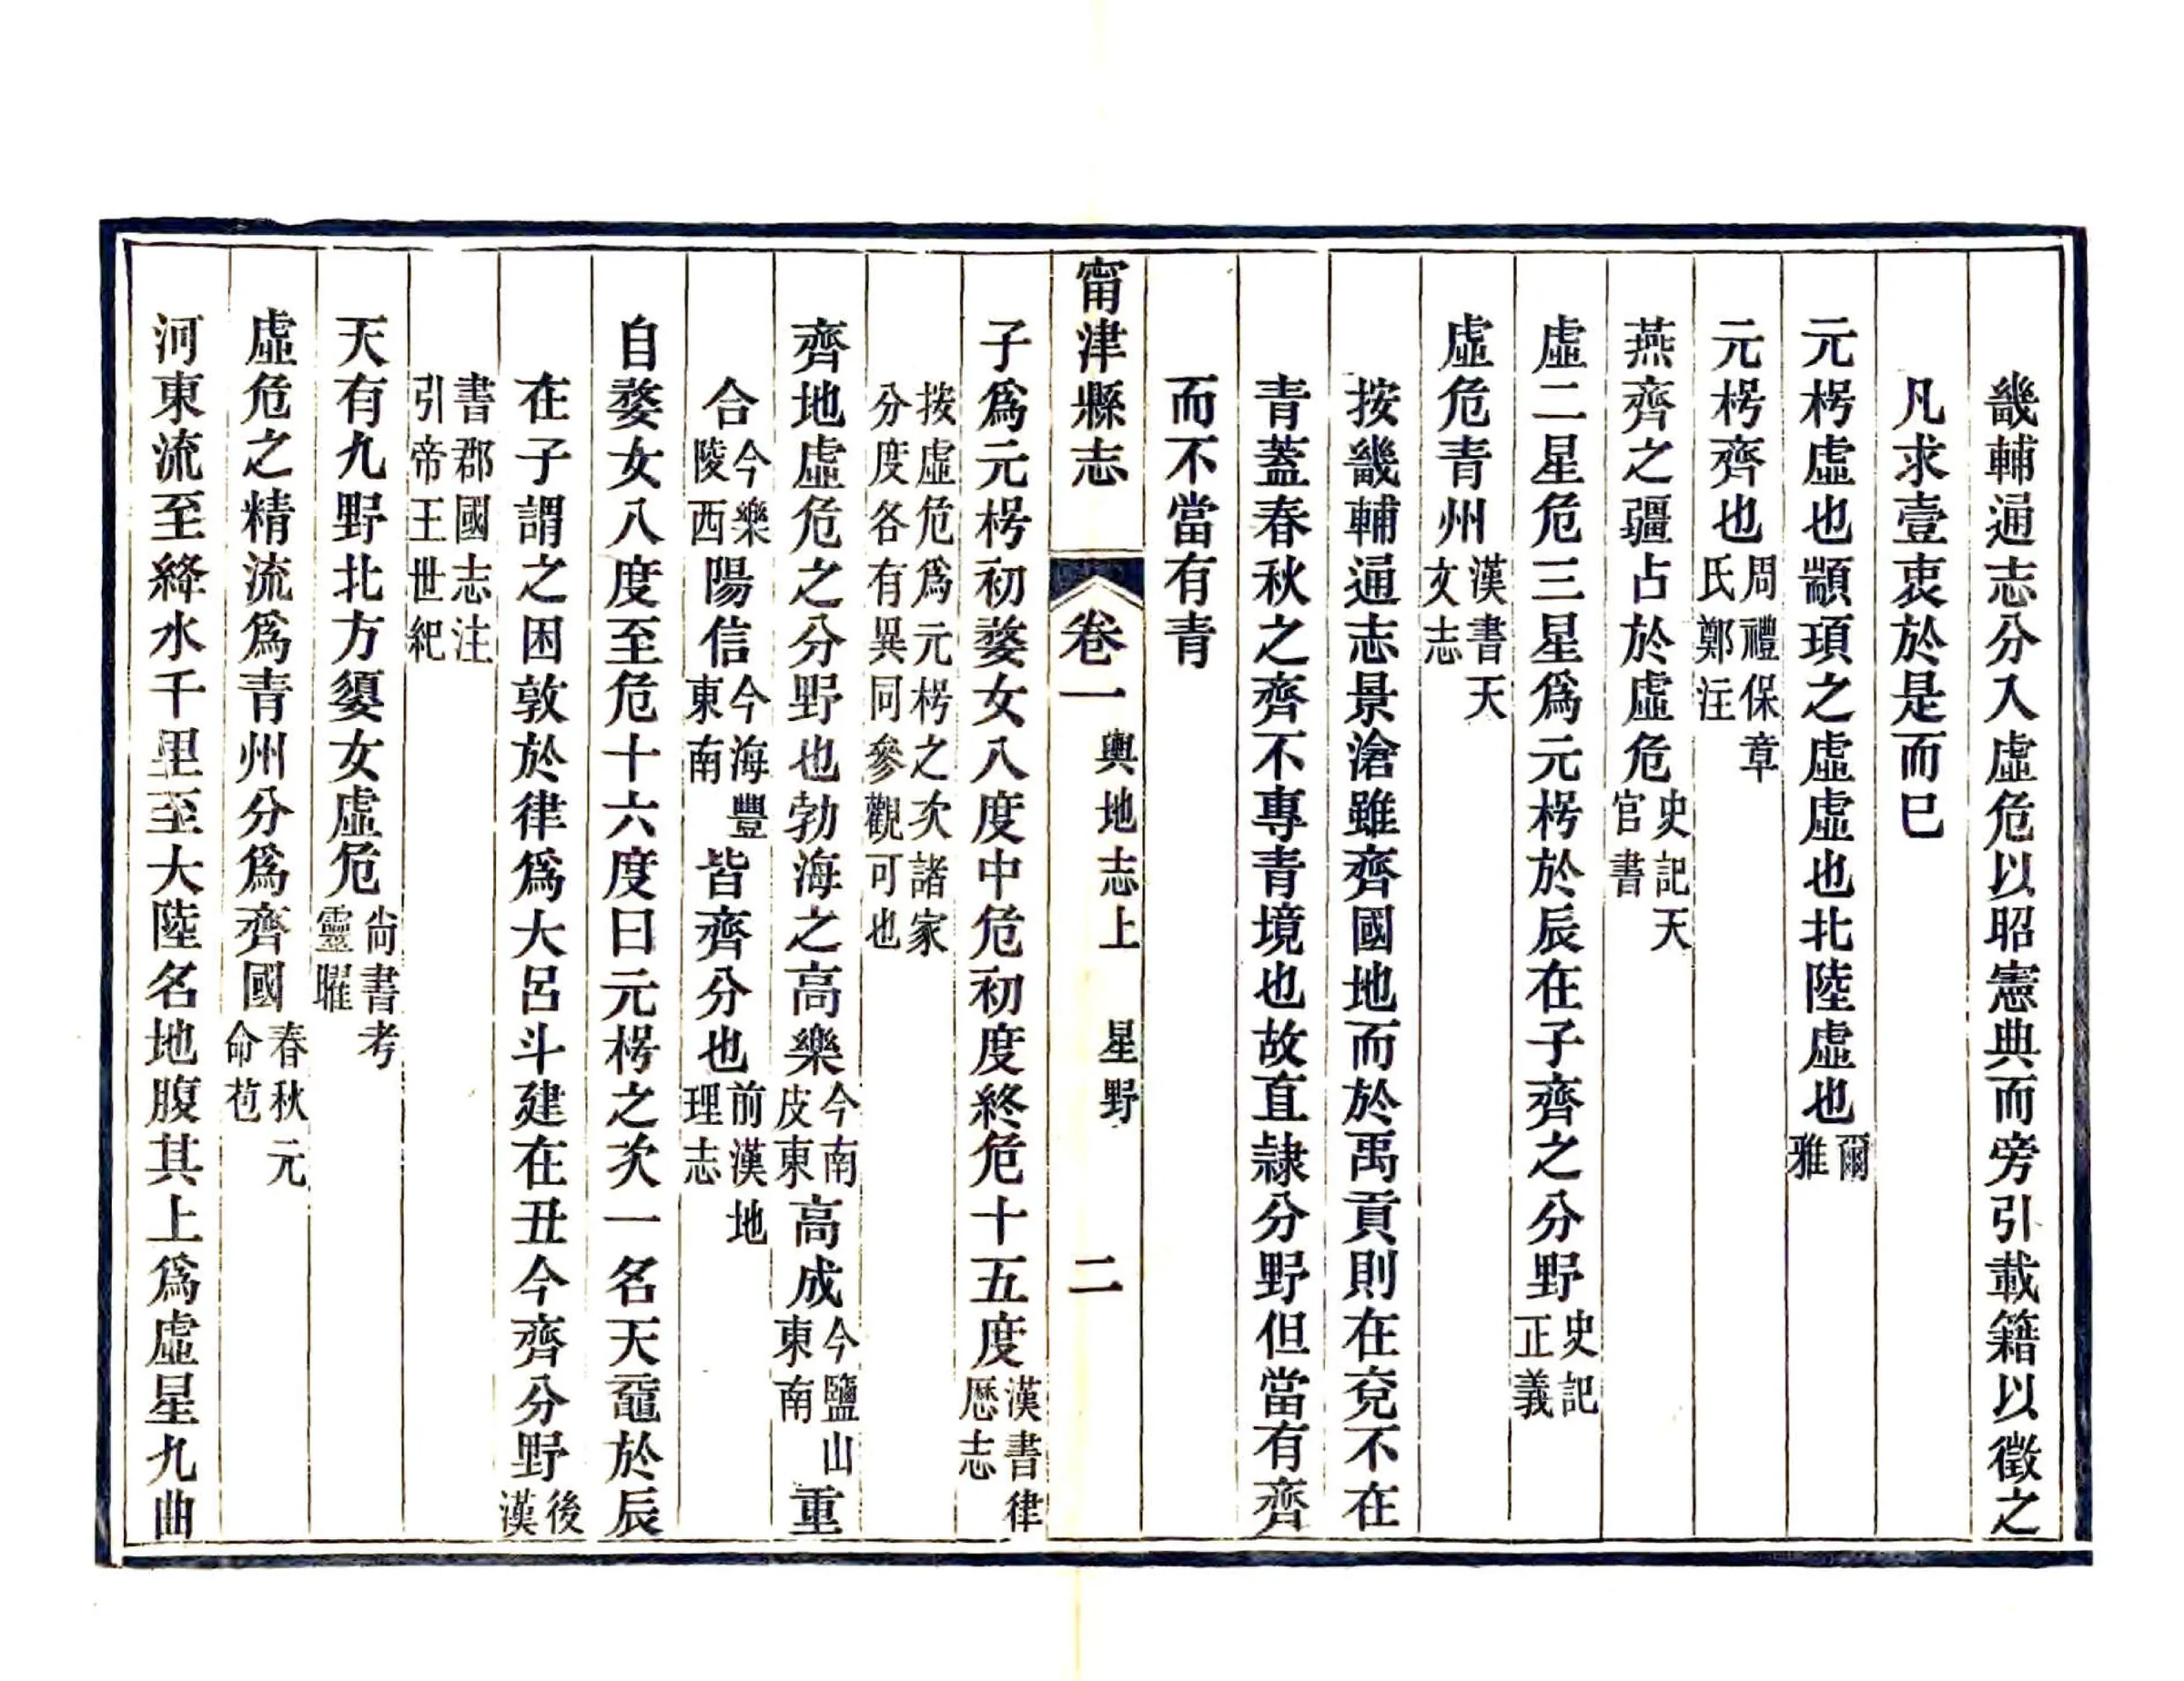 畿輔通志分入虛危以昭憲典而旁引載籍以徵之
凡求壹衷於是而已
元枵虛也顓頊之虛虛也北陸虛也爾雅
元枵齊也周禮保章氏鄭注
燕齊之疆占於虛危史記天官書
虛二星危三星爲元枵於辰在子齊之分野史記正義
虛危青州漢書天文志
按畿輔通志景滄雖齊國地而於禹貢則在兗不在
青蓋春秋之齊不專青境也故直隸分野但當有齊
而不當有青
甯津縣志 卷一 輿地志上 星野 二
子爲元枵初婺女八度中危初度終危十五度漢書律歷志
按虛危爲元枵之次諸家分度各有異同參觀可也
齊地虛危之分野也勃海之高樂今南皮東高成今鹽山東南重
合今樂陵西陽信今海豐東南皆齊分也前漢地理志
自婺女八度至危十六度曰元枵之次一名天黿於辰
在子謂之困敦於律爲大呂斗建在丑今齊分野後漢
書郡國志注引帝王世紀
天有九野北方嬃女虛危尙書考靈曜
虛危之精流爲青州分爲齊國春秋元命苞
河東流至絳水千里至大陸名地腹其上爲虛星九曲